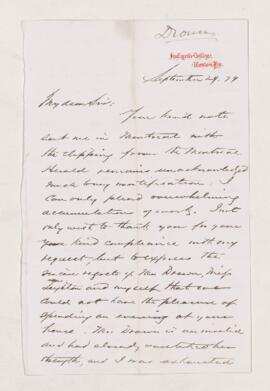 Drown
Lafayette College,
Easton, Pa.
September 29. 79
My dear Sir:
Your kind note
sent me in Montreal with
the clipping from the Montreal
Herald remains unacknowledged
much to my mortification. I
can only plead overwhelming
accumulation of work. I not
only wish to thank you for your
kind compliance with my
request, but to express the
sincere regrets of Mrs Drown, Miss
Leighton and myself that we
could not have the pleasure of
spending an evening at your
house. Mrs Drown is an invalid
and had already overtaxed her
strength, and I was exhausted